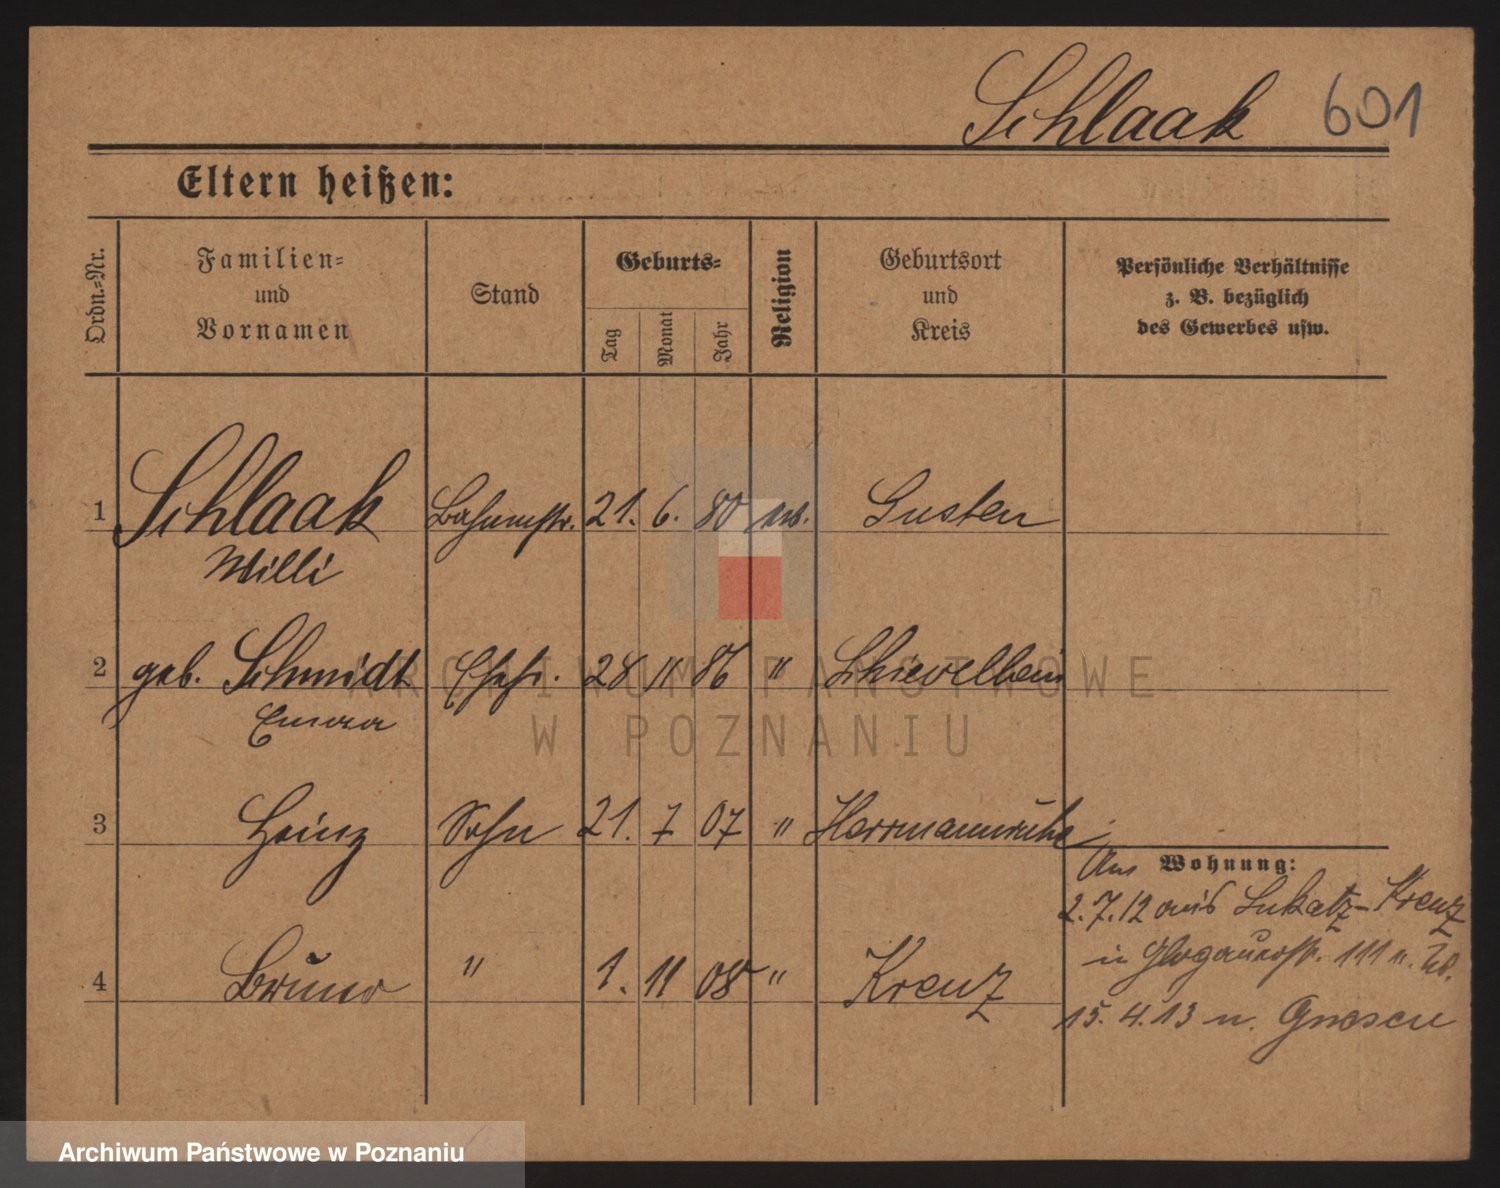 Schlaak 601
Eltern heißen:
Ordn.-Nr.
Familien-
und
Vornamen
Stand
Geburts-
Tag
Monat
Jahr
Religion
Geburtsort
und
Kreis
Persönliche Verhältnisse
z. B. bezüglich
des Gewerbes usw.
1 Schlaak Bahnmstr. 21. 6. 80 Gusten
Willi
2 geb. Schmidt Ehefr. 28 11 86 " Schievelbein
Emma
3 Heinz Sohn 21. 7 07 " Herrmannruhe
4 Bruno " 1. 11 08 " Kreuz
Wohnung:
2.7.12 aus Lukatz-Kreuz
in Glogauerstr. 111
15.4.13 n. Gnesen
ARCHIWUM PAŃSTWOWE
W POZNANIU
Archiwum Państwowe w Poznaniu